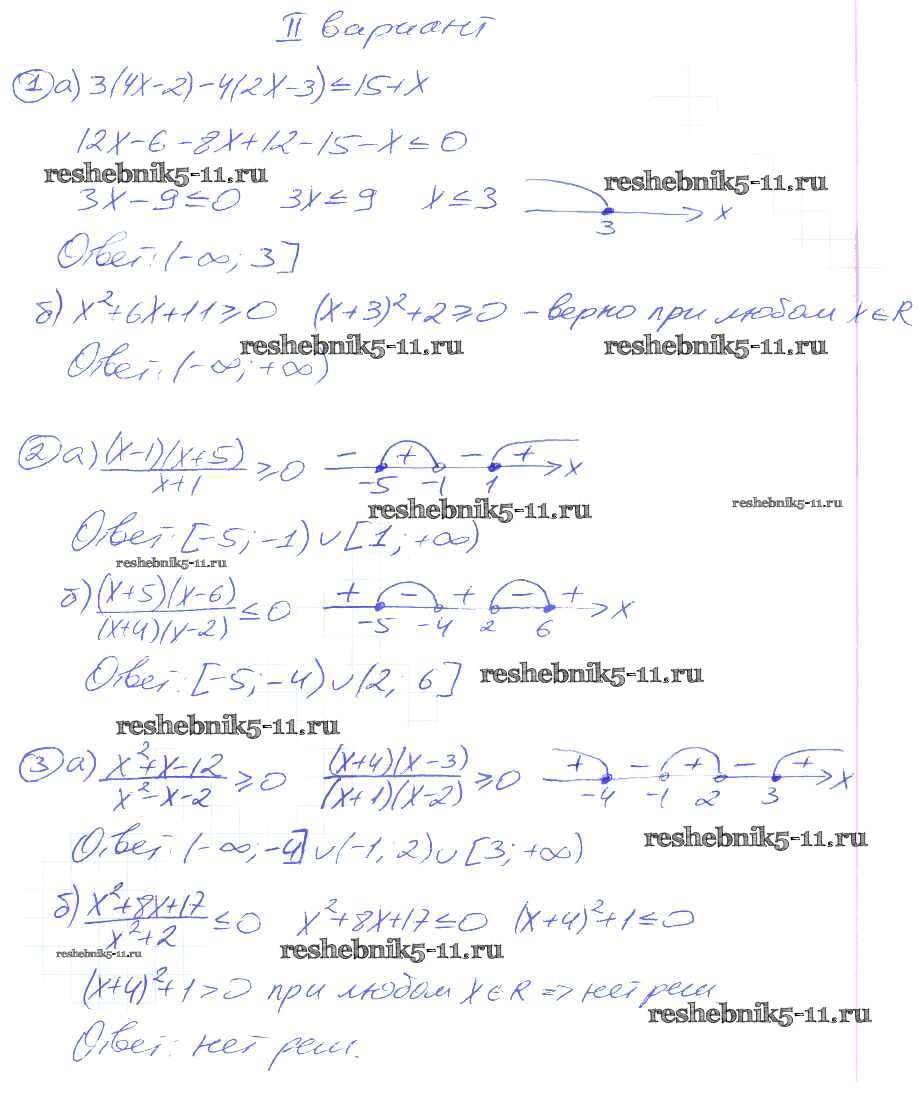 II вариант
① а) 3(4x-2)-4(2x-3)≤15+x
12x-6-8x+12-15-x≤0
reshebnik5-11.ru reshebnik5-11.ru
3x-9≤0 3x≤9 x≤3 3 x
Ответ: (-∞; 3]
б) x²+6x+11≥0 (x+3)²+2≥0 - верно при любом x∈R
reshebnik5-11.ru reshebnik5-11.ru
Ответ: (-∞; +∞)
② а) (x-1)(x+5)/x+1 ≥0 - + - + -5 -1 1 x
reshebnik5-11.ru reshebnik5-11.ru
Ответ: [-5; -1) ∪ [1; +∞)
reshebnik5-11.ru
б) (x+5)(x-6)/(x+4)(x-2) ≤0 + - + - + -5 -4 2 6 x
Ответ: [-5; -4) ∪ (2; 6] reshebnik5-11.ru
reshebnik5-11.ru
③ а) x²+x-12/x²-x-2 ≥0 (x+4)(x-3)/(x+1)(x-2) ≥0 + - + - + -4 -1 2 3 x
reshebnik5-11.ru
Ответ: (-∞; -4] ∪ (-1; 2) ∪ [3; +∞)
б) x²+8x+17/x²+2 ≤0 x²+8x+17≤0 (x+4)²+1≤0
reshebnik5-11.ru reshebnik5-11.ru
(x+4)²+1>0 при любом x∈R ⇒ нет реш
reshebnik5-11.ru
Ответ: нет реш.